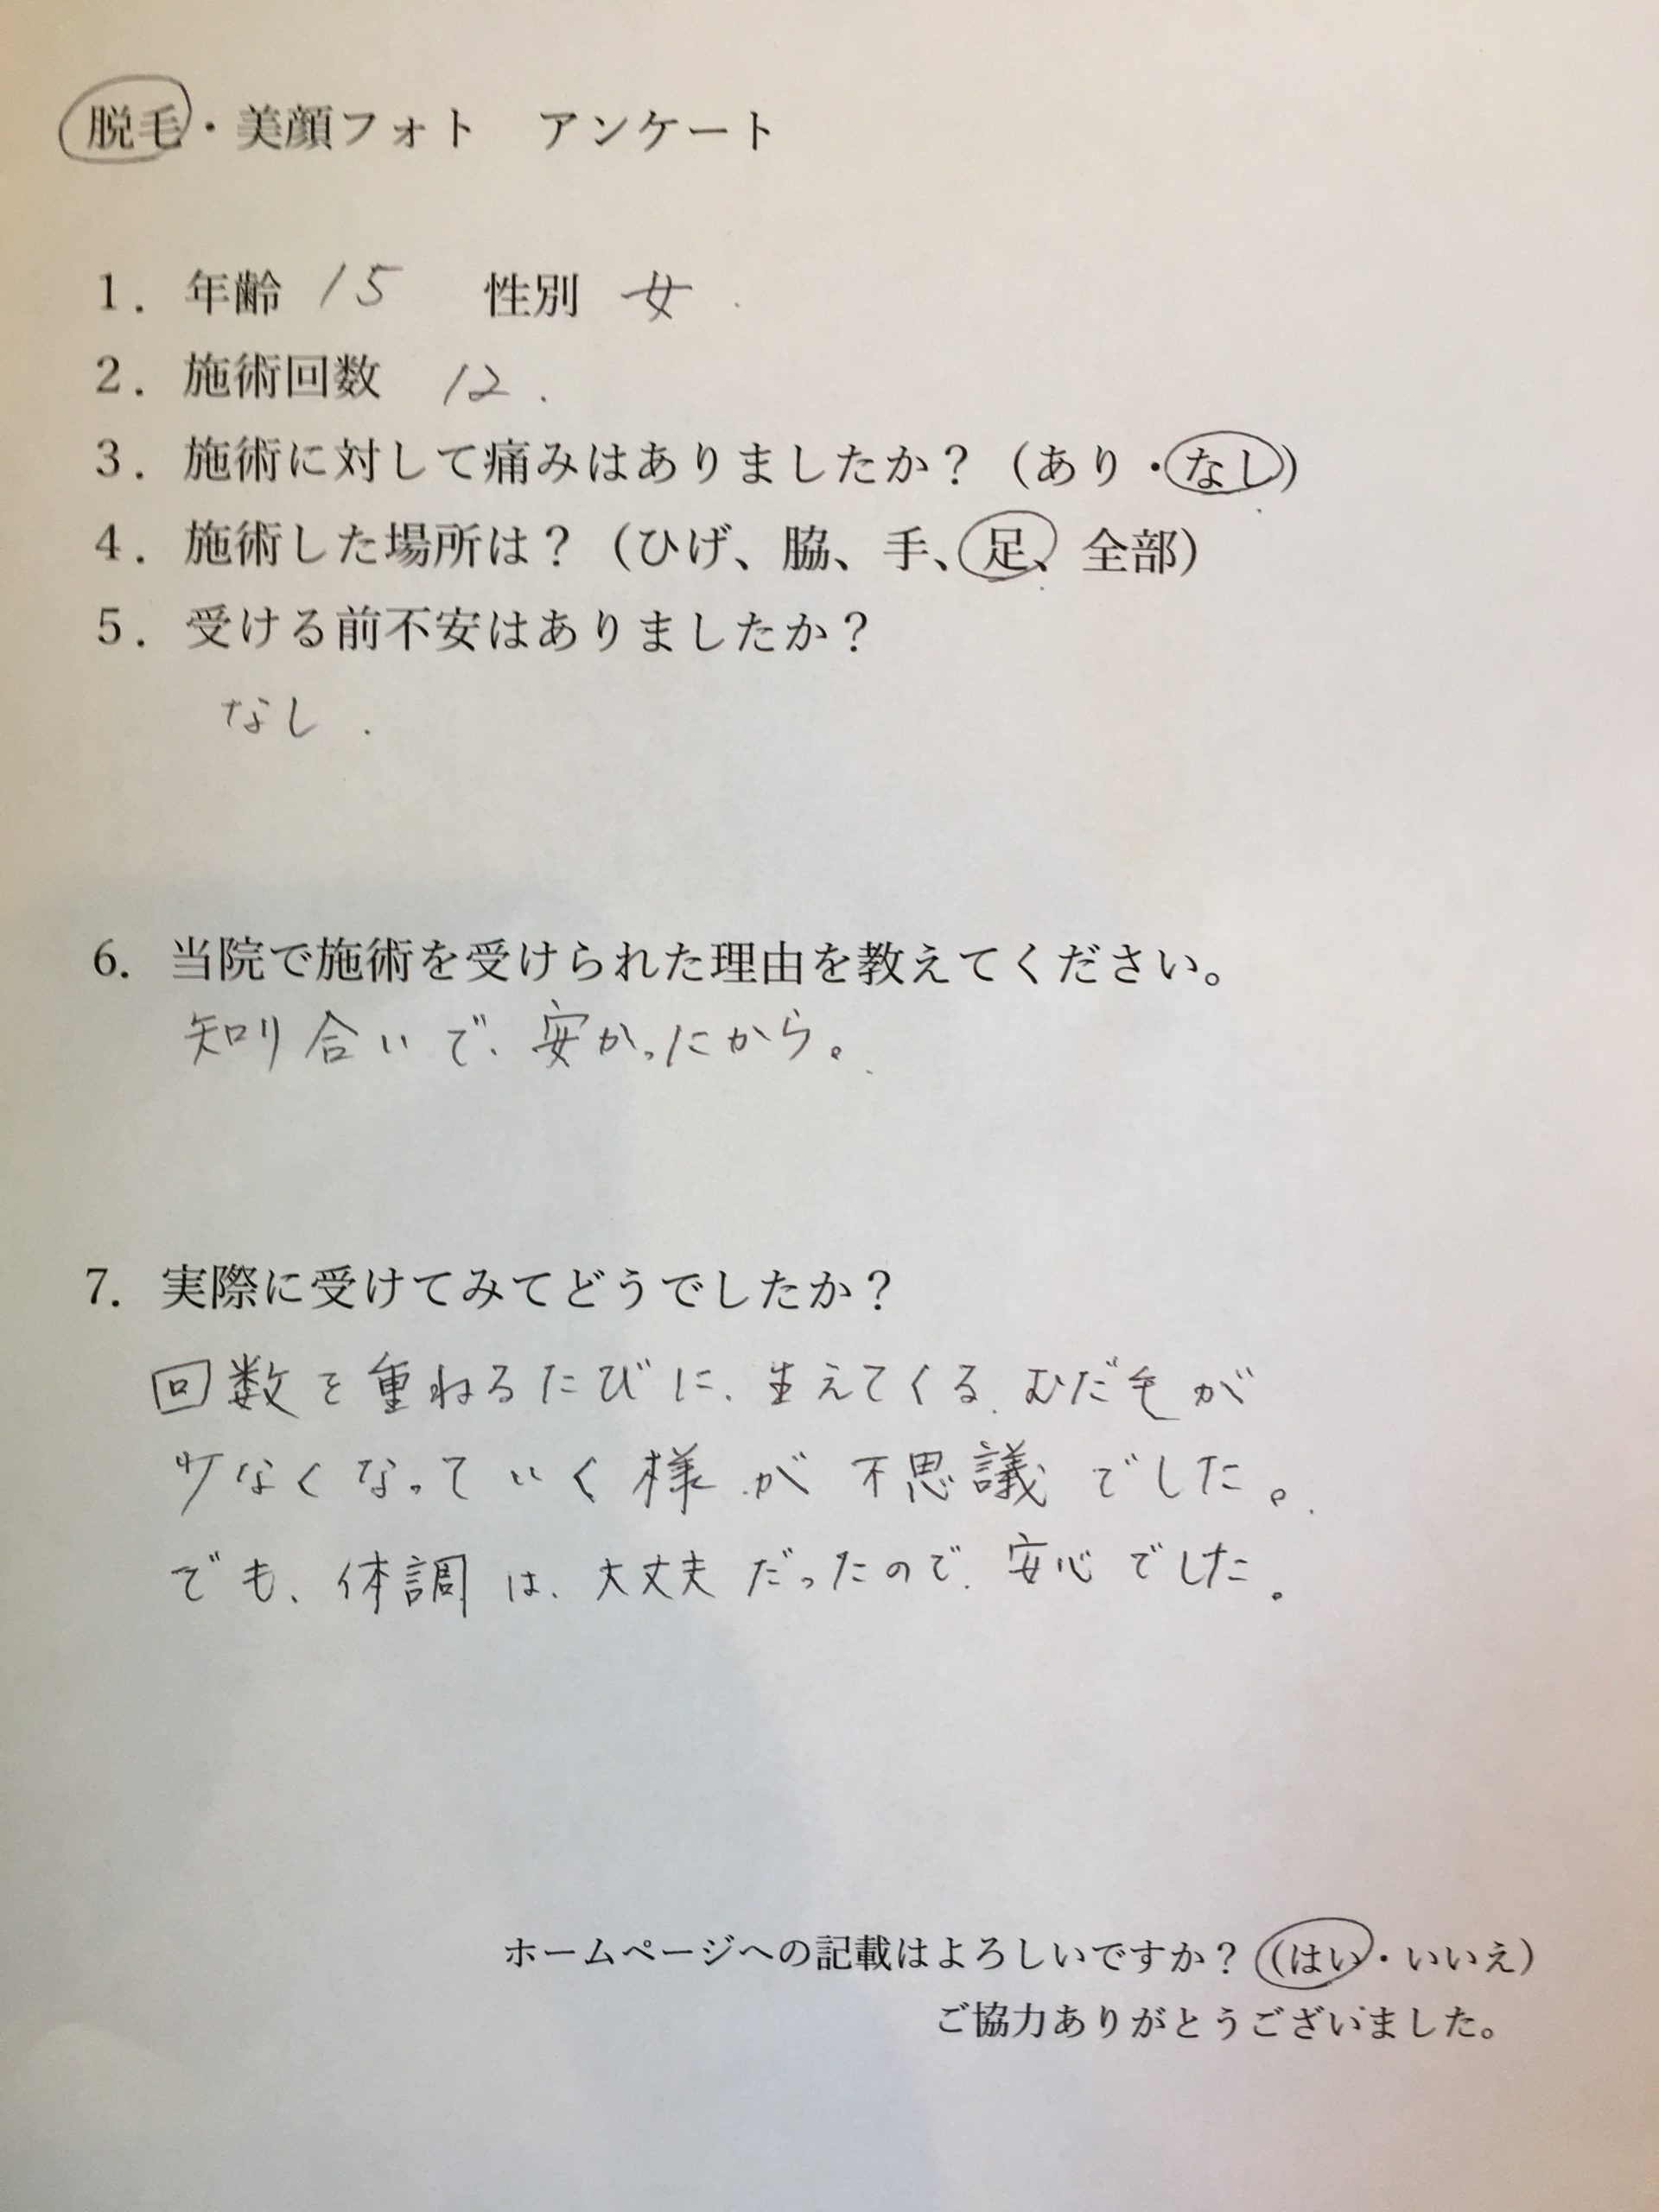 脱毛・美顔フォト　アンケート
1．年齢 15　性別 女
2．施術回数 12.
3．施術に対して痛みはありましたか？（あり・なし）
4．施術した場所は？（ひげ、脇、手、足、全部）
5．受ける前不安はありましたか？
なし.
6．当院で施術を受けられた理由を教えてください。
知り合いで、安かったから。
7．実際に受けてみてどうでしたか？
回数を重ねるたびに、生えてくる、むだ毛が
少なくなっていく様が不思議でした。
でも、体調は、大丈夫だったので、安心でした。
ホームページへの記載はよろしいですか？（はい・いいえ）
ご協力ありがとうございました。